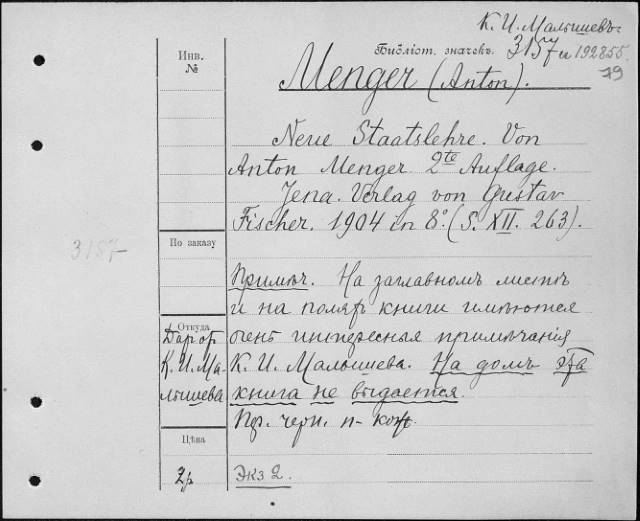 К. И. Малышевъ
Библіот. значекъ. 3157 192855
79
Инв.
№
Menger (Anton).
Neue Staatslehre. Von
Anton Menger 2te Auflage.
Jena. Verlag von Gustav
Fischer. 1904 in 8°. (S. XII. 263).
3157
По заказу
Примѣч. На заглавномъ листѣ
и на поляхъ книги имѣются
очень интересныя примѣчанія
К. И. Малышева. На домъ эта
книга не выдается.
Пер. черн. п-кож.
Откуда
Даръ отъ
К. И. Ма
лышева
Цѣна
2 р
Экз 2.